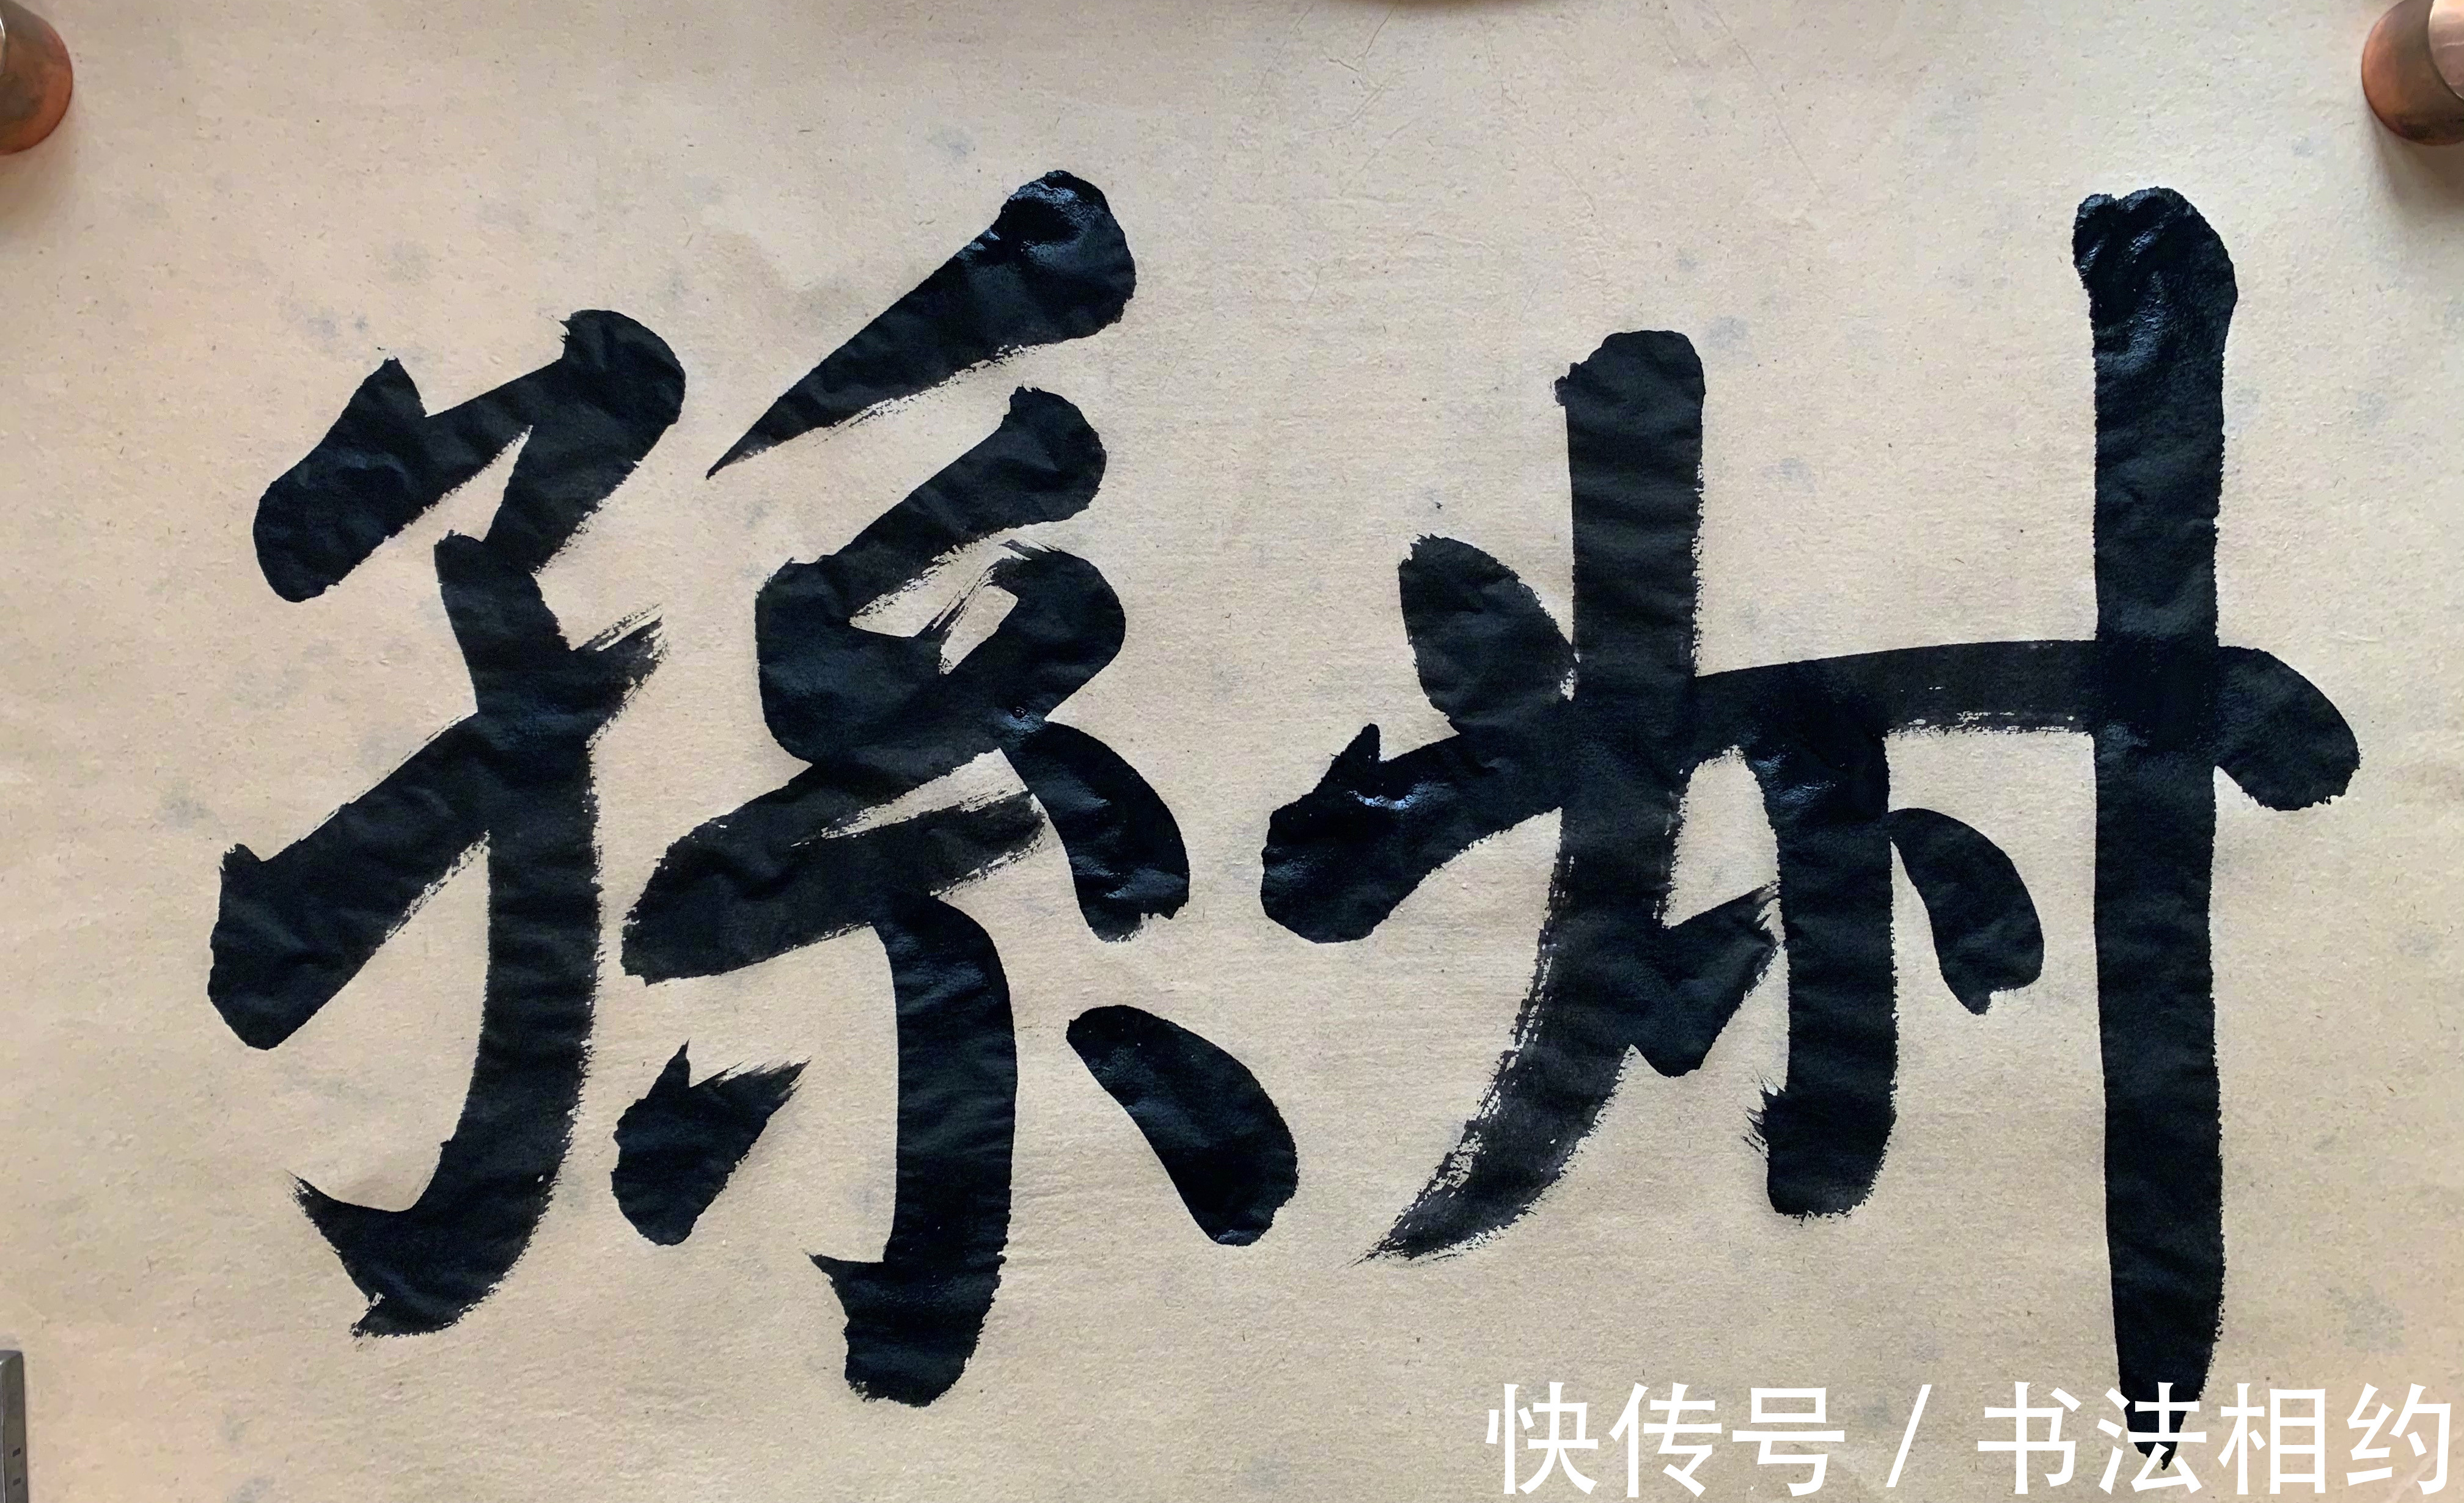 孫
快传号 / 书法相约